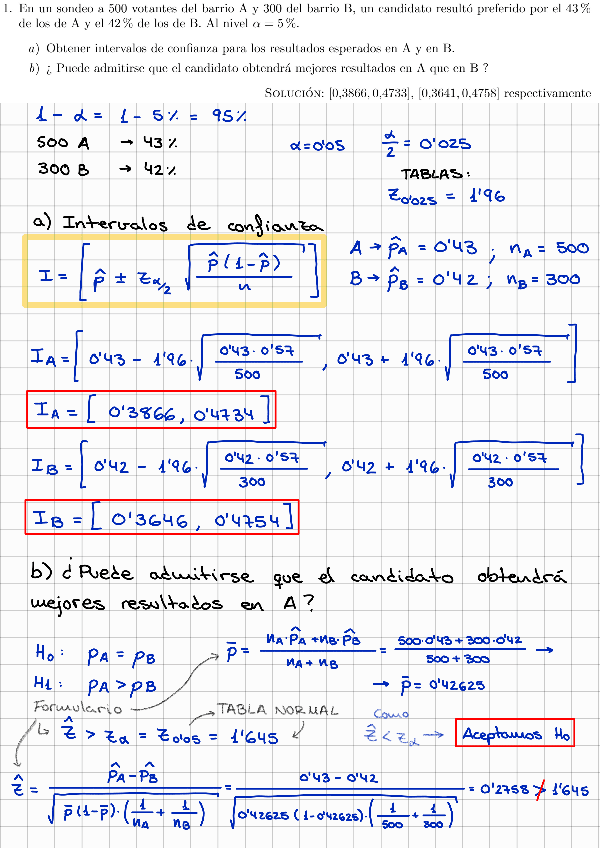 1. En un sondeo a 500 votantes del barrio A y 300 del barrio B, un candidato resultó preferido por el 43 %
de los de A y el 42 % de los de B. Al nivel α = 5 %.
a) Obtener intervalos de confianza para los resultados esperados en A y en B.
b) ¿ Puede admitirse que el candidato obtendrá mejores resultados en A que en B ?
Solución: [0,3866, 0,4733], [0,3641, 0,4758] respectivamente
1 - α = 1 - 5% = 95%
500 A → 43% α=0'05 α/2 = 0'025
300 B → 42%
TABLAS:
Z0'025 = 1'96
a) Intervalos de confianza
I = [ p̂ ± Zα/2 √(p̂(1-p̂)/n) ]
A → p̂A = 0'43 ; nA = 500
B → p̂B = 0'42 ; nB = 300
IA = [ 0'43 - 1'96·√(0'43·0'57/500) , 0'43 + 1'96·√(0'43·0'57/500) ]
IA = [ 0'3866, 0'4734 ]
IB = [ 0'42 - 1'96·√(0'42·0'57/300) , 0'42 + 1'96·√(0'42·0'57/300) ]
IB = [ 0'3646, 0'4754 ]
b) ¿Puede admitirse que el candidato obtendrá
mejores resultados en A?
H0: pA = pB
H1: pA > pB
p̄ = (nA·p̂A + nB·p̂B)/(nA + nB) = (500·0'43 + 300·0'42)/(500 + 300) →
→ p̄ = 0'42625
Formulario
TABLA NORMAL
↳ Ẑ > Zα = Z0'05 = 1'645
Como
Ẑ < Zα → Aceptamos H0
Ẑ = (p̂A - p̂B)/√(p̄(1-p̄)·(1/nA + 1/nB)) = (0'43 - 0'42)/√(0'42625(1-0'42625)·(1/500 + 1/300)) = 0'2758 ≯ 1'645